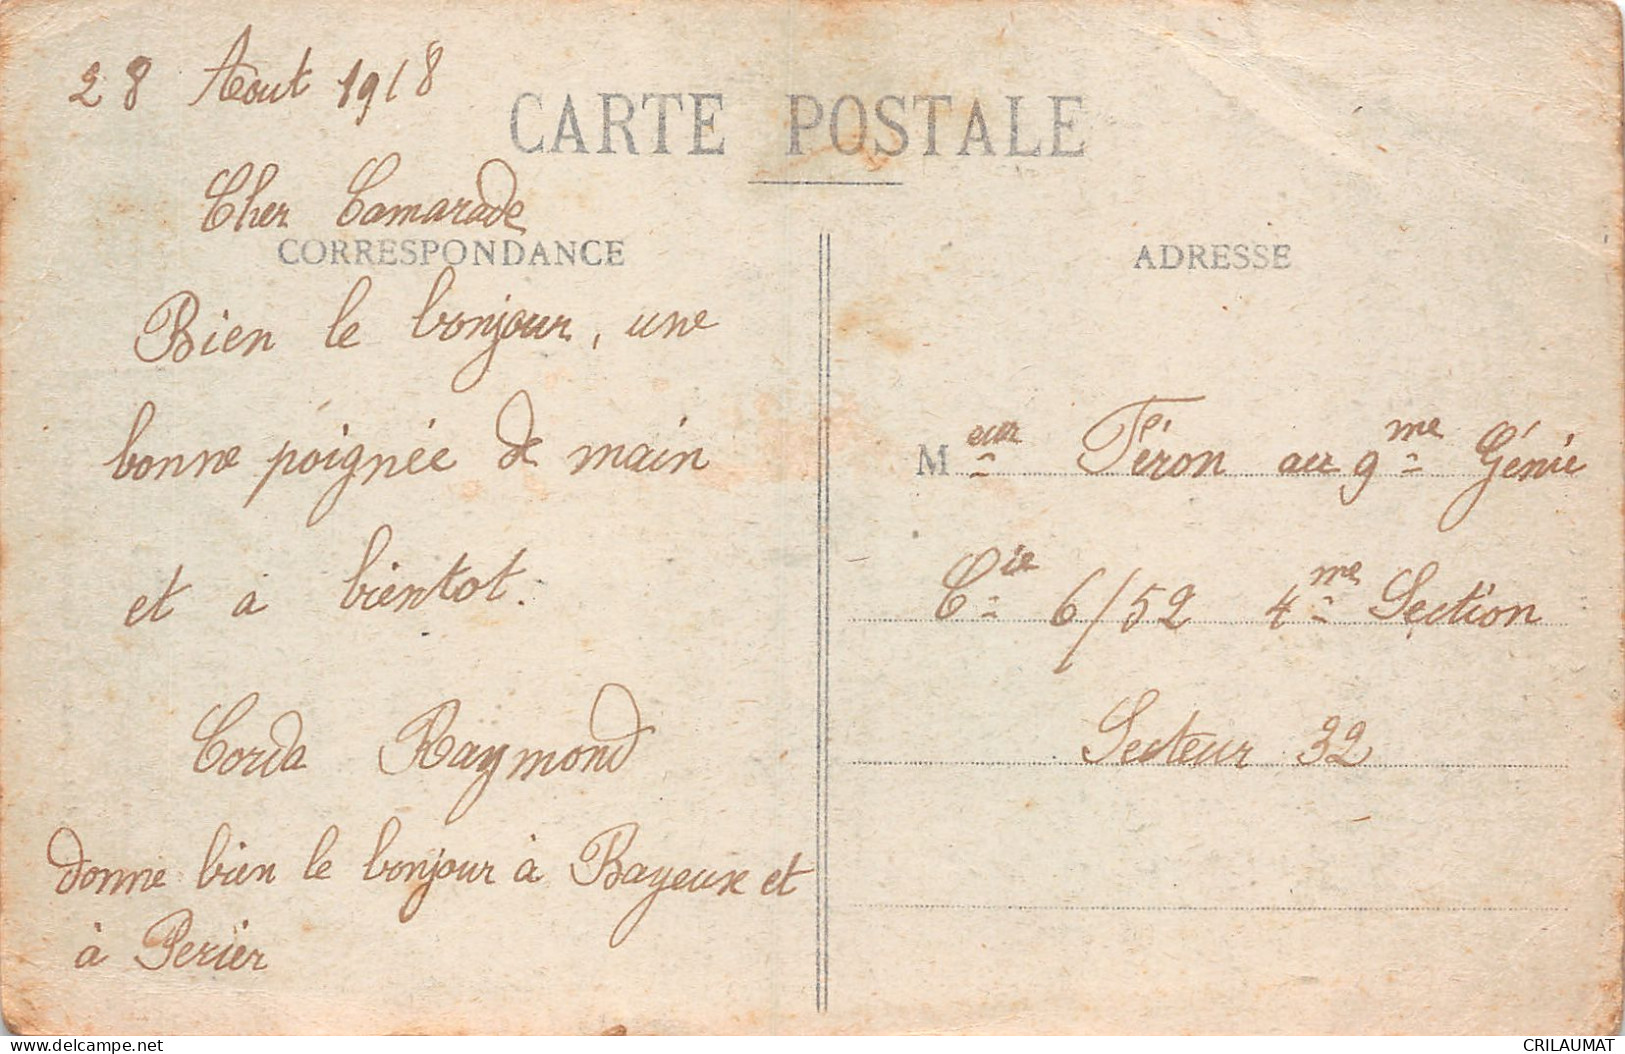 28 Aout 1918
CARTE POSTALE
Cher Camarade
CORRESPONDANCE
Bien le bonjour, une
bonne poignée de main
et a bientot.
Corda Raymond
donne bien le bonjour à Bayeux et
à Perier
ADRESSE
Meur Féron au 9me Génie
Cie 6/52 4me Section
Secteur 32
delcampe.net
CRILAUMAT